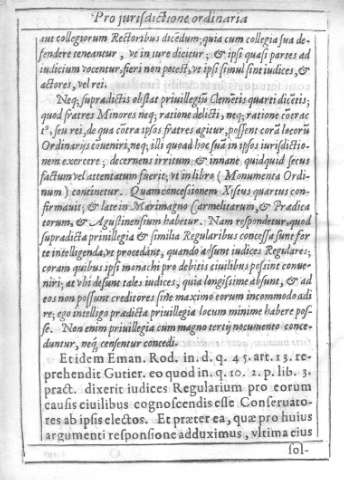 Pro jurisdictione ordinaria
aut collegiorum Rectoribus dicēdum; quia cum collegia sua de-
fendere teneantur, vt in iure dicitur; & ipsi quasi partes ad
iudicium vocentur, fieri non potest, vt ipsi simul sint iudices, &
actores, vel rei.
Neq; supradictis obstat priuilegiū Clemētis quarti dicētis;
quod fratres Minores neq; ratione delicti, neq; ratione cōtrac
t⁹, seu rei, de qua cōtra ipsos fratres agitur, possent corā locorū
Ordinarijs cōueniri, neq; illi quoad hoc sua in ipsos iurisdictio-
nem exercere; decernens irritum & innane quidquid secus
factum vel attentatum fuerit; vt in libro (Monumenta Ordi-
num) continetur. Quam concessionem Xistus quartus con-
firmauit; & late in Marimagno Carmelitarum, & Prædica
torum, & Agustinensium habetur. Nam respondetur, quod
supradicta priuilegia & similia Regularibus concessa sunt for
te intelligenda, vt procedant, quando adsunt iudices Regulares;
coram quibus ipsi monachi pro debitis ciuilibus possint conue-
niri; at vbi desunt tales iudices, quia longissime absunt, & ad
eos non possunt creditores sine maximo eorum incommodo adi
re; ego intelligo prædicta priuilegia locum minime habere pos-
se. Non enim priuilegia cum magno tertij nocumento conce-
duntur, neq; censentur concedi.
Et idem Eman. Rod. in. d. q. 45. art. 13. re-
prehendit Gutier. eo quod in. q. 10. 2. p. lib. 3.
pract. dixerit iudices Regularium pro eorum
causis ciuilibus cognoscendis esse Conseruato-
res ab ipsis electos. Et præter ea, quæ pro huius
argumenti responsione adduximus, vltima eius
sol-